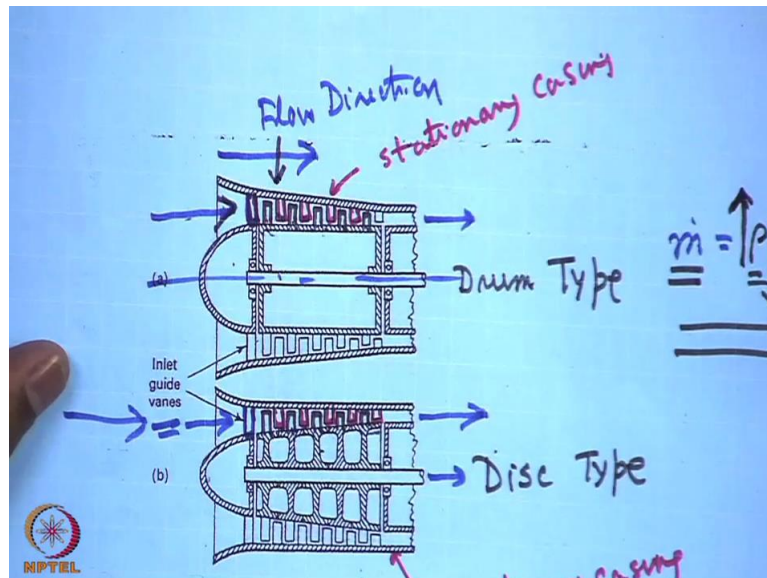 Flow Direction
stationary casing
(a)
Drum Type
ṁ = ρ
Inlet
guide
vanes
(b)
Disc Type
casing
NPTEL